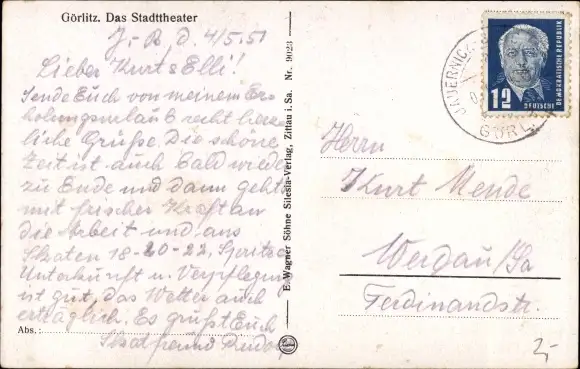 Görlitz. Das Stadttheater
J.-B, d. 4/5.51
Lieber Kurt & Elli!
Sende Euch von meinem Er-
holungsurlaub recht herz-
liche Grüße. Die schöne
Zeit ist auch bald wieder
zu Ende und dann geht
mit frischer Kraft an
die Arbeit und ans
Skaten 18-20-22,
Unterkunft u. Verpflegung
ist gut, das Wetter auch
erträglich. Es grüßt Euch
Abs.: Skatfreund Rudolf
E. Wagner Söhne Silesia-Verlag, Zittau i. Sa. Nr. 9023
JAUERNICK
GÖRL
12
DEUTSCHE
DEMOKRATISCHE REPUBLIK
Herrn
Kurt Mende
Werdau/Sa
Ferdinandstr.
2,-